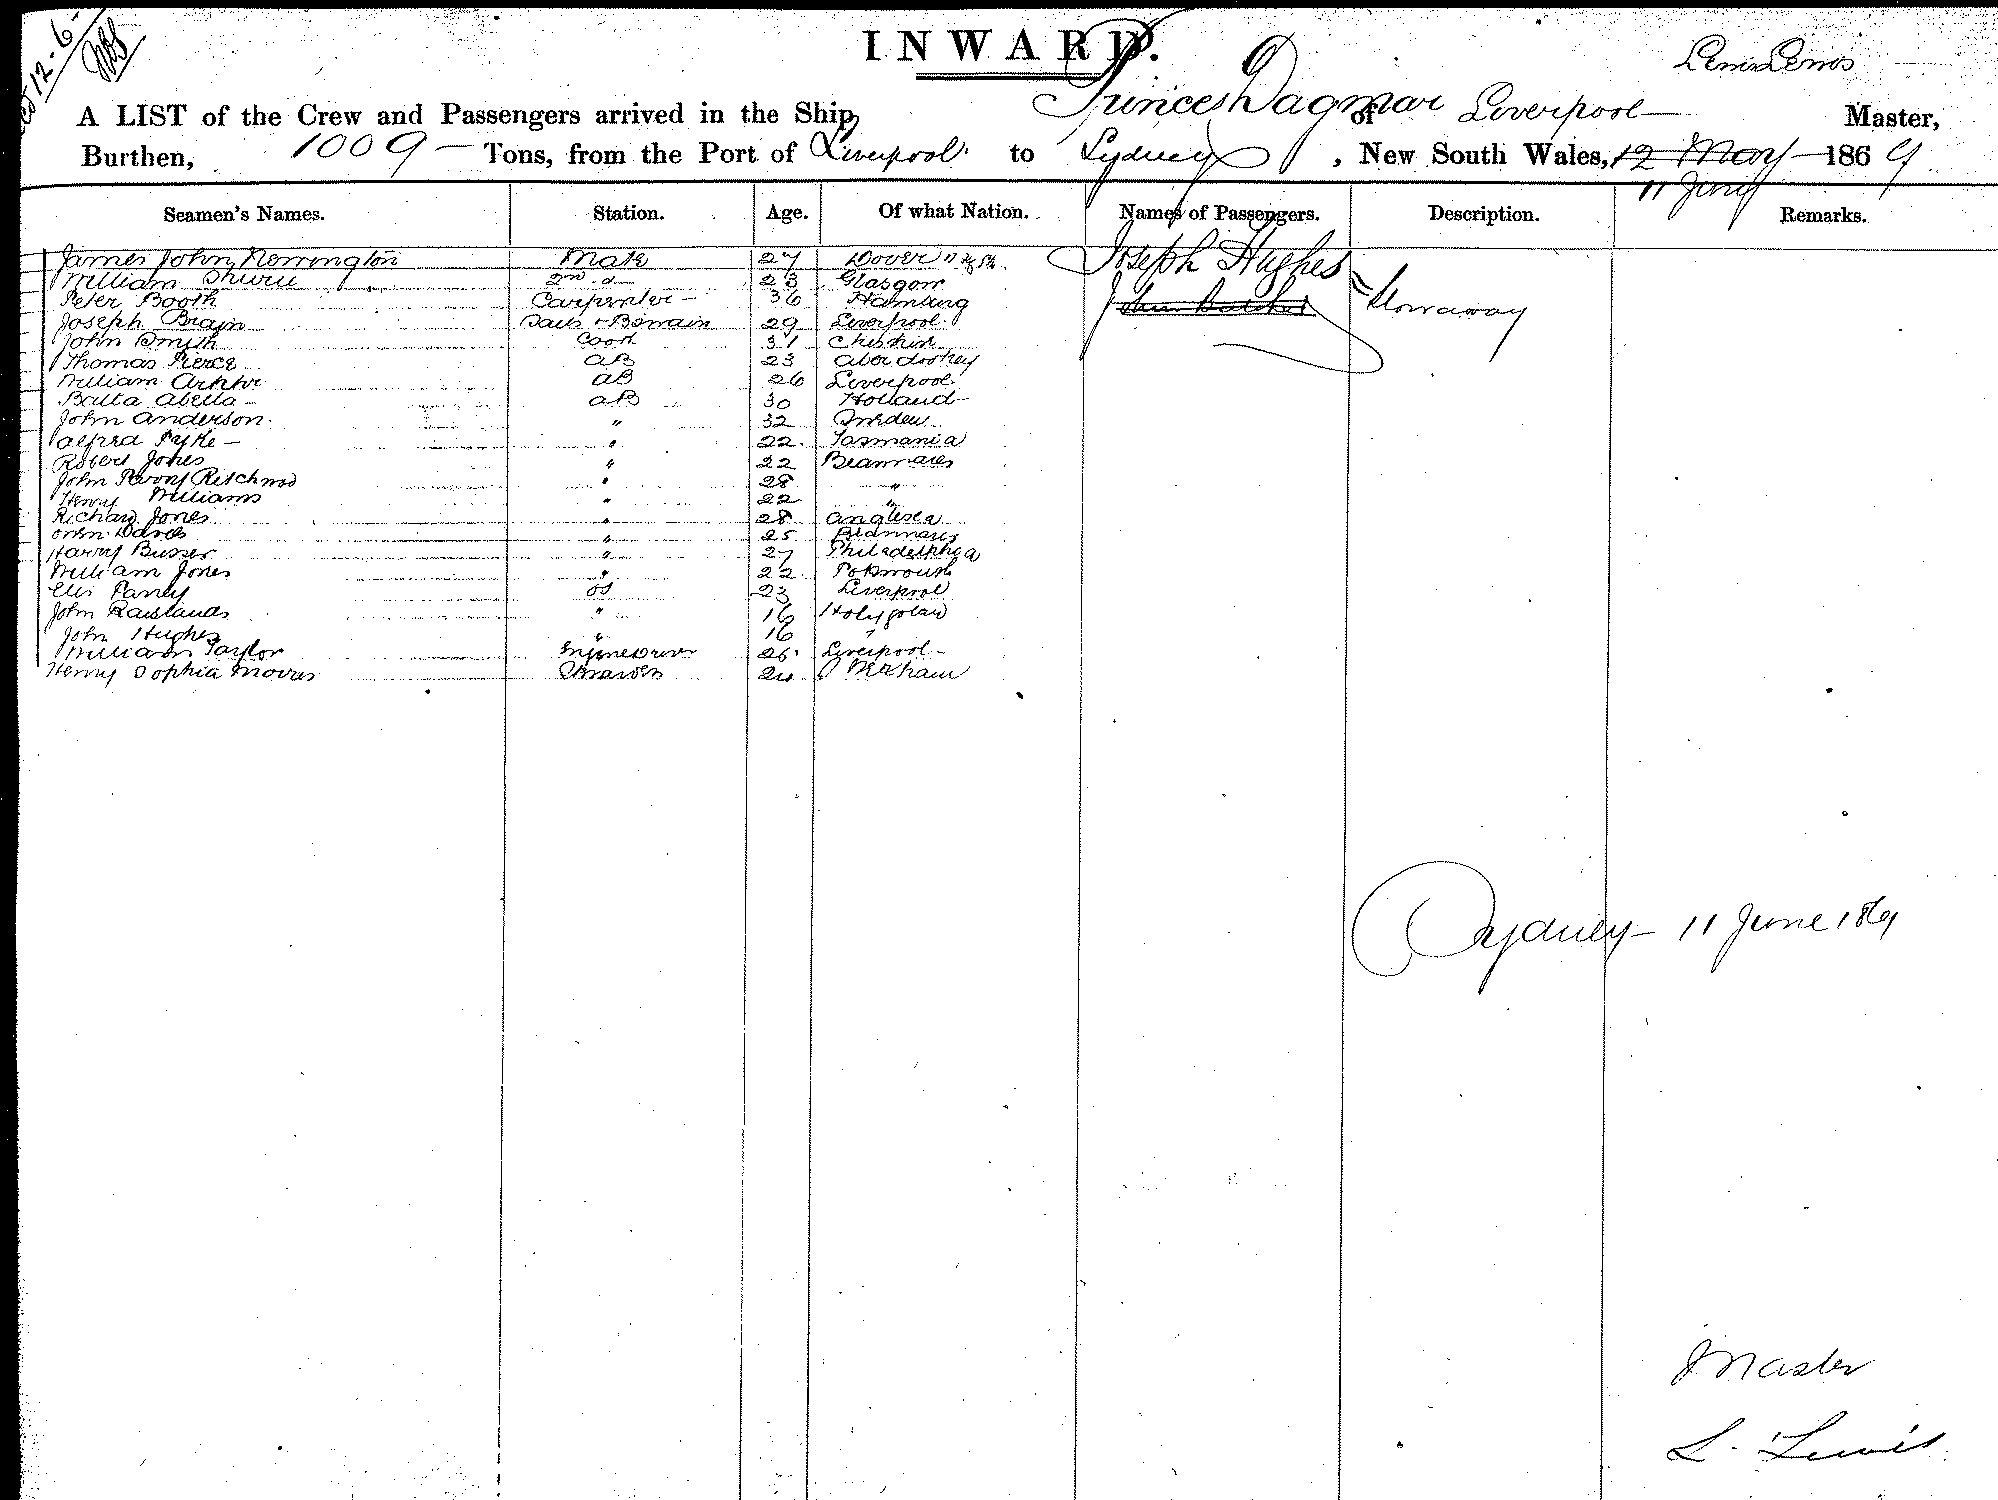 12-6-
INWARD.
Lewis Lewis
A LIST of the Crew and Passengers arrived in the Ship Princes Dagmar of Liverpool Master,
Burthen, 1009 Tons, from the Port of Liverpool to Sydney, New South Wales, 12 May 1869
11 June
Seamen's Names. Station. Age. Of what Nation. Names of Passengers. Description. Remarks.
James John Mate 27 Dover Joseph Hughes
William 2nd do 23 Glasgow Stowaway
Peter Booth Carpenter 36 Hamburg John
Joseph Brain Sails & 29 Liverpool
John Smith Cook 31 Cheshire
Thomas Pierce AB 23
William AB 26 Liverpool
Balta Abella AB 30 Holland
John Anderson " 32 Sweden
Alfred Pyke " 22 Tasmania
Robert Jones " 22 Beaumares
John " 28 "
Henry Williams " 22 "
Richard Jones " 28 Anglesea
Davies " 25 Beaumaris
Harry Busser " 27 Philadelphia
William Jones " 22
Parry OS 23 Liverpool
John Rawlands " 16
John Hughes " 16 "
William Taylor Engine Driver 26 Liverpool
Henry Sophia 24
Sydney 11 June 1869
Master
L. Lewis